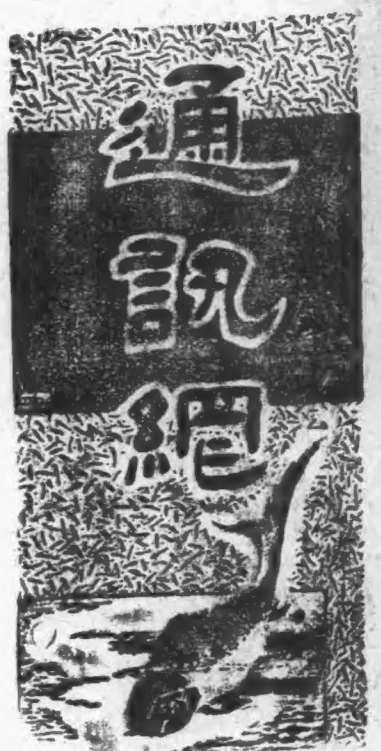 通訊網